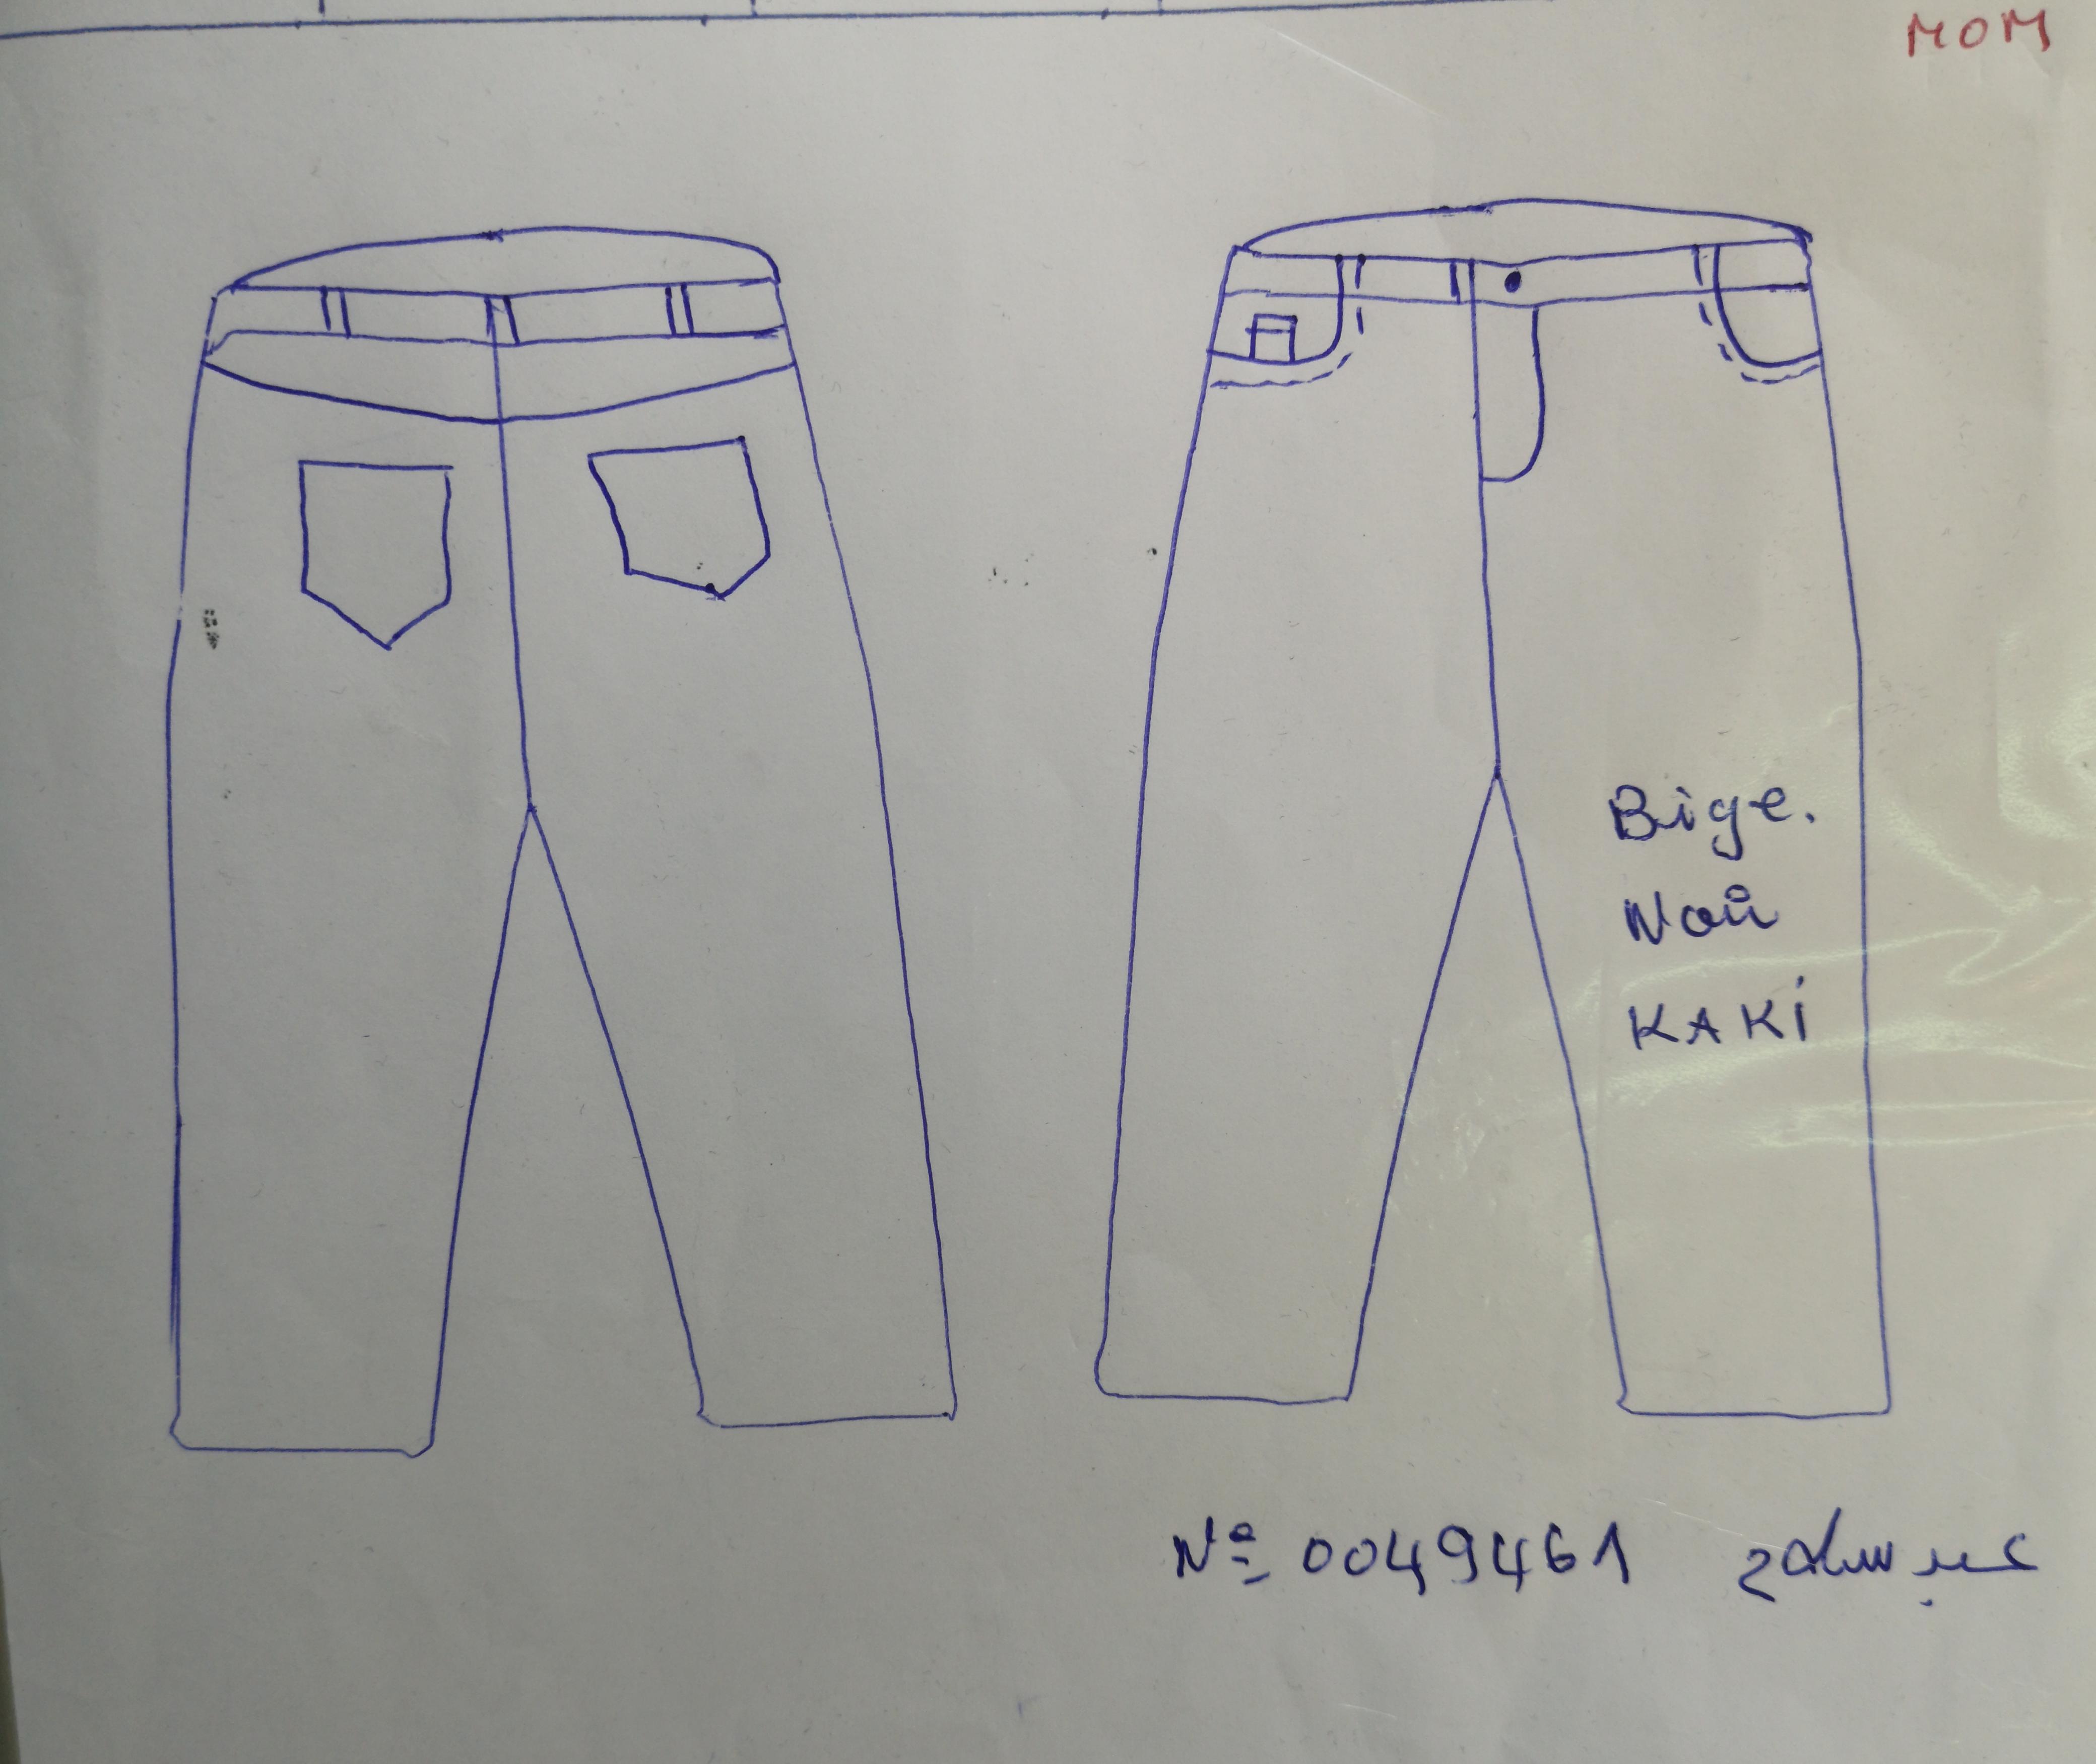 MOM
Bige.
Noir
KAKi
Nº 0049461